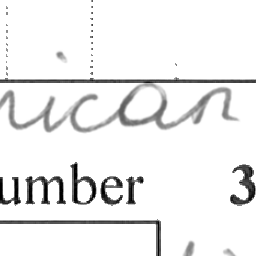 nican
umber 3